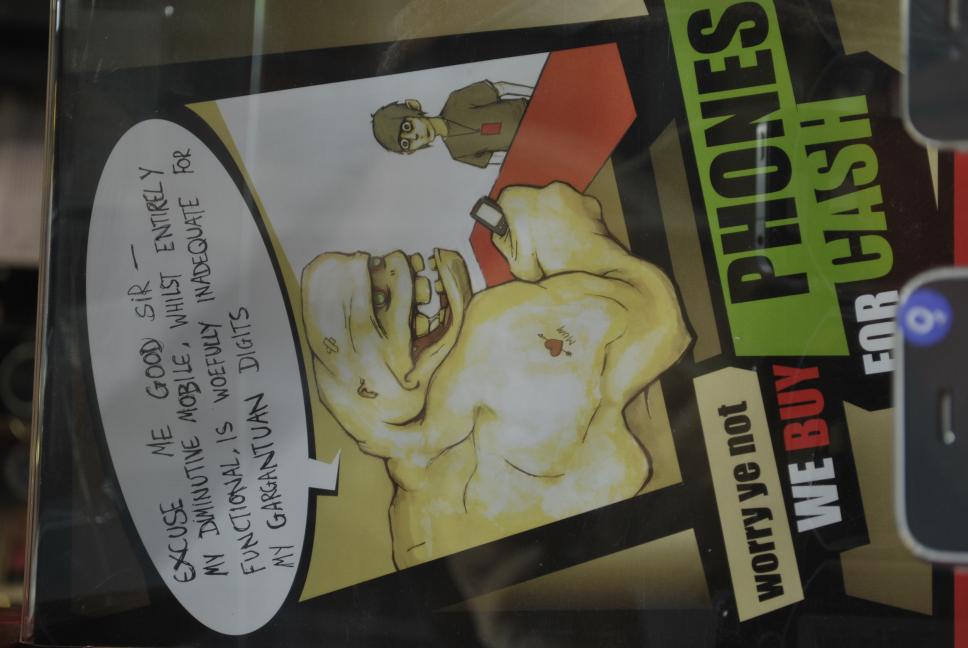 EXCUSE ME GOOD SIR —
MY DIMINUTIVE MOBILE, WHILST ENTIRELY
FUNCTIONAL, IS WOEFULLY INADEQUATE FOR
MY GARGANTUAN DIGITS
MUM
worry ye not
WE BUY PHONES
FOR CASH